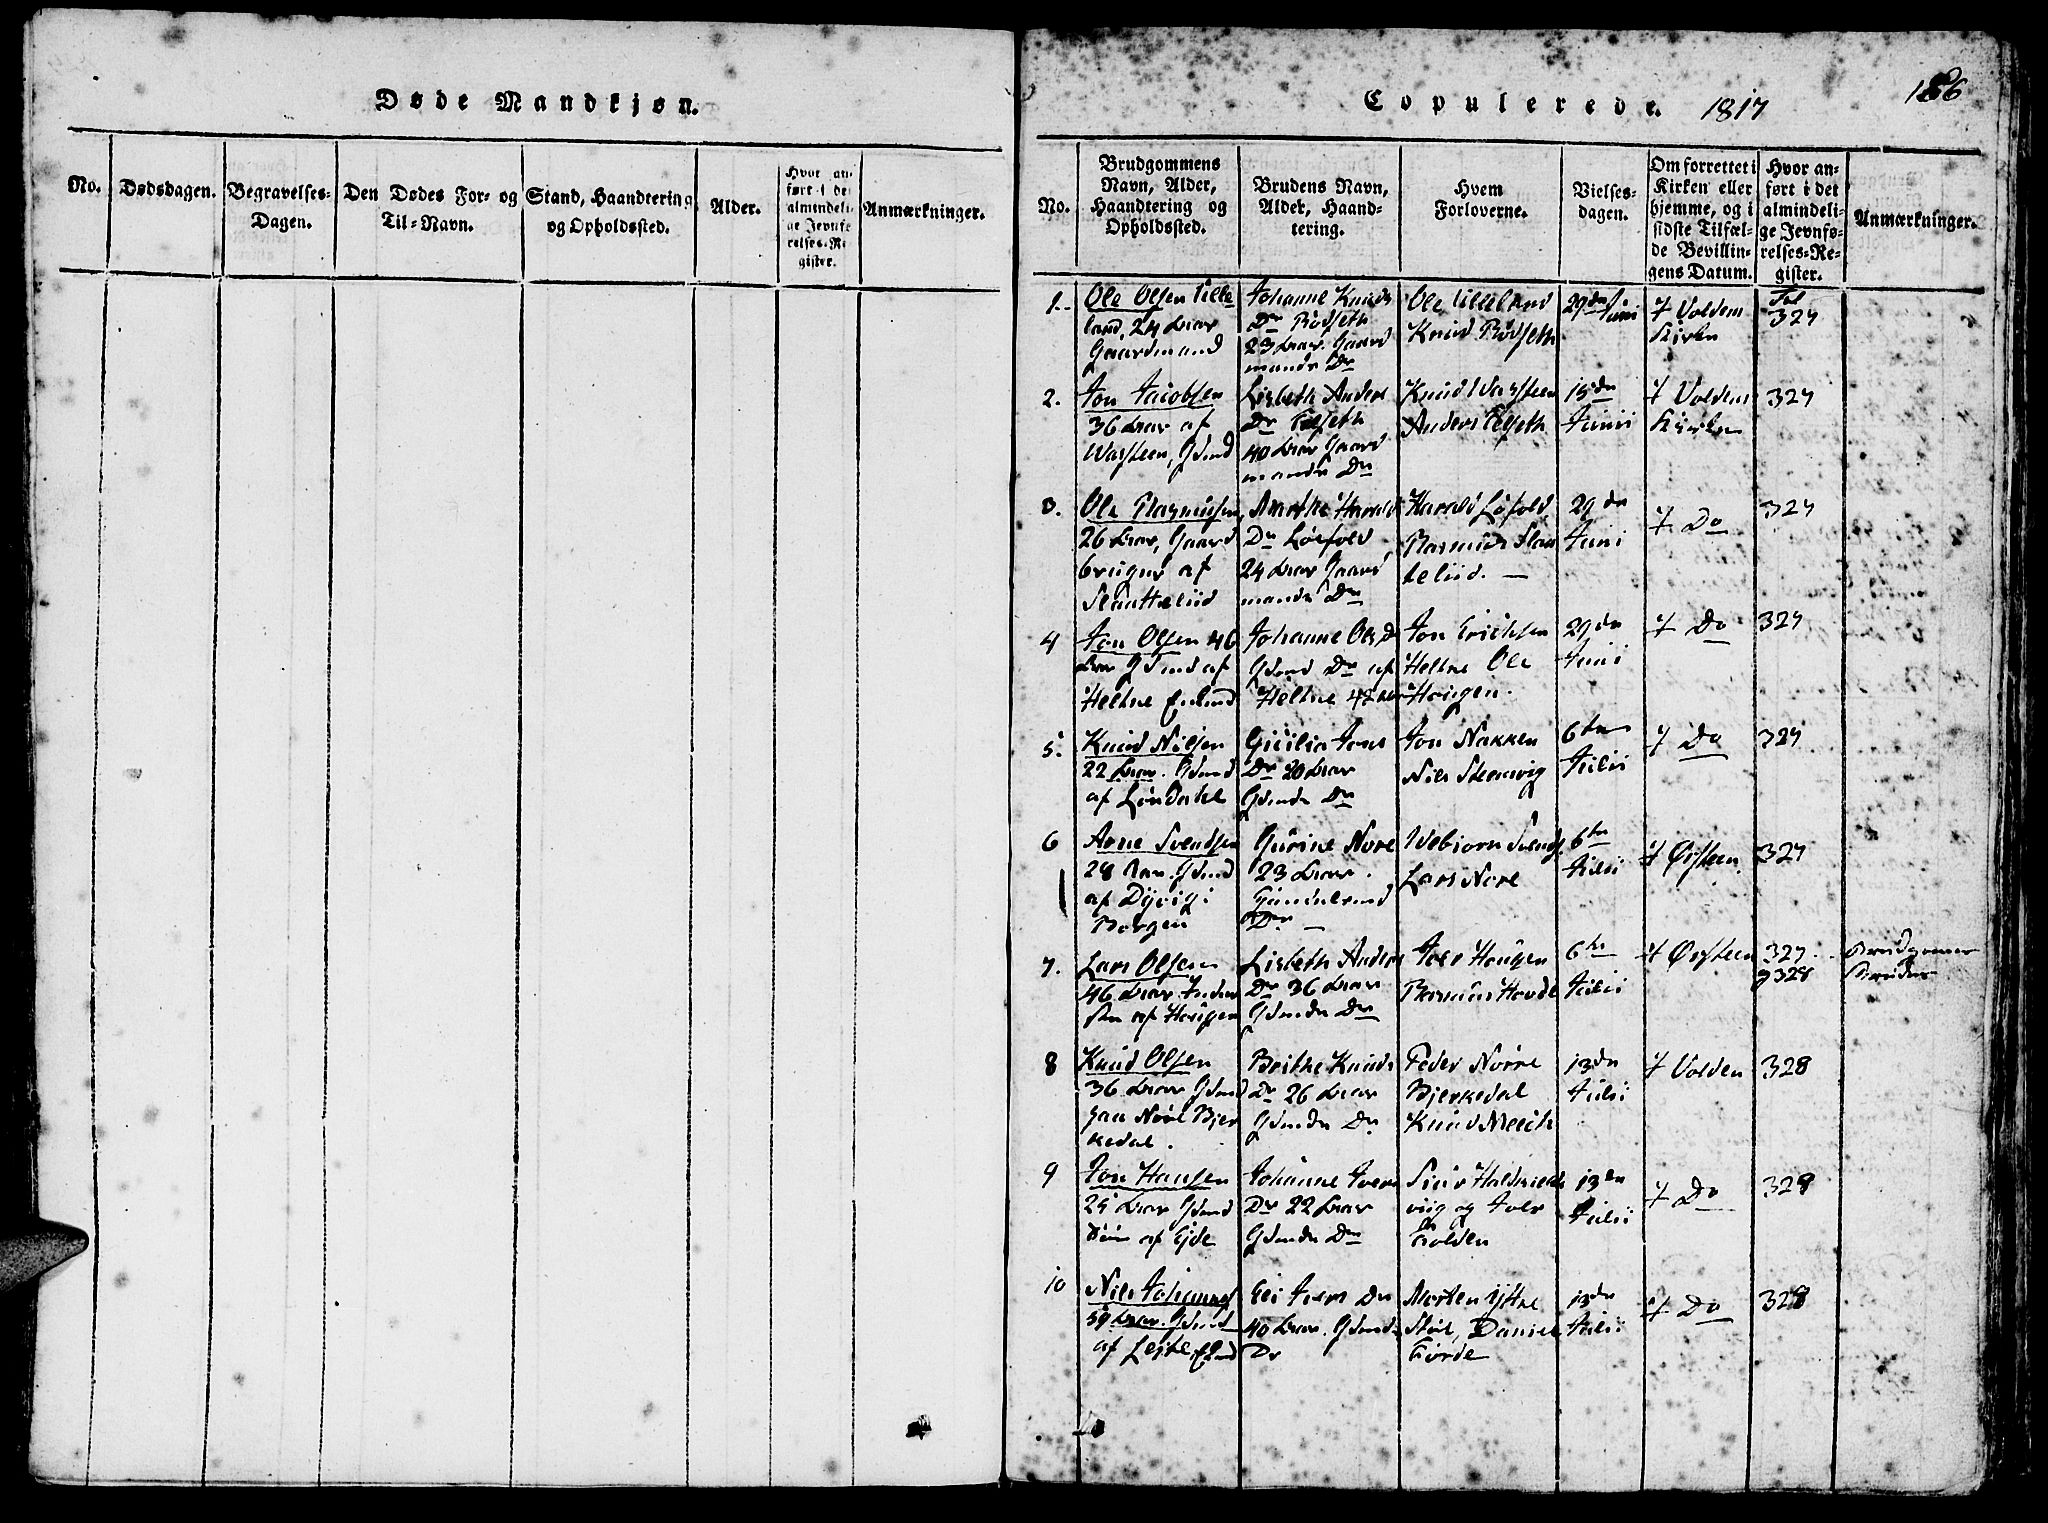 Døde Mandkjøn.
No.
Dødsdagen.
Begravelses-
Dagen.
Den Dødes For- og
Til-Navn.
Stand, Haandtering
og Opholdssted.
Alder.
Hvor an-
ført i de
almindeli-
ge Jevnfø-
relses-Re-
gister.
Anmærkninger.
Copulerede. 1817
186
No.
Brudgommens
Navn, Alder,
Haandtering og
Opholdssted.
Brudens Navn,
Alder, Haand-
tering.
Hvem
Forloverne.
Vielses-
dagen.
Om forrettet i
Kirken eller
hjemme, og i
sidste Tilfæl-
de Bevillin-
gens Datum.
Hvor an-
ført i det
almindeli-
ge Jevnfø-
relses-Re-
gister.
Anmærkninger.
1.
Ole Olsen Lille
land, 24 Aar
Gaardmand
Johanne Knuds
Dr Rødseth
23 Aar. Gaard
mands Dr
Ole Lilleland
Knud Rødseth
29de Juni
i Volden
Kirke
Fol
327
2.
Jon Jacobsen
36 Aar af
Wasteen, Gdmd
Lisbeth Anders
Dr
40 Aar Gaard
mands Dr
Knud Wasteen
Anders
15de
Junii
i Volden
Kirke
327
3.
Ole Rasmusen,
26 Aar, Gaard
bruger af
Slaatteliid
Marthe Harald
Dr Løfold
24 Aar Gaard
mands Dr
Harald Løfold
Rasmus Slaa
teliid. —
29de
Juni
i Do
327
4
Jon Olsen 46
Aar Gdmd af
Heltne Enkmd
Johanne Ols Dr
Gdmd Dr af
Heltne 42 Aar
Jon Erichsen
Heltne Ole
Hougen.
29de
Juni
i Do
327
5.
Knud Nilsen
22 Aar. Gdmd
af
Gicilia Jons
Dr 20 Aar
Gdmds Dr
Jon Nakken
Nils Steenvig
6te
Julii
i Do
327
6
Arne Svendsen
28 Aar. Gdmd
af Dyvig i
Borgen
Gurine Nore
23 Aar.
Dr —
Webiorn Svends
Lars Nore
6te
Julii
i Ørsteen
327
7.
Lars Olsen
46 Aar
af Hougen
Lisbeth Anders
Dr 36 Aar
Gdmds Dr
Joer Hougen
Rasmus Hovde
6te
Julii
i Ørsteen
327.
328
Brudgomen
Bruden
8
Knud Olsen
36 Aar Gdmd
paa Nore Bjer
kedal.
Brithe Knuds
Dr 26 Aar
Gdmds Dr
Peder Norre
Bjerkedal
Knud Meech
13de
Julii
i Volden
328
9
Jon Hansen
25 Aar Gdmd
Søn af Ejde
Johanne Ivers
Dr 22 Aar
Gdmds Dr
Siur
viig og Iver
Folden
13de
Julii
i Do
328
10
Nils Johannes
59 Aar. Gdmd
af Lejte, Ekmd
Eli Ivers Dr
40 Aar. Gdmds
Dr
Morten Yttre
Støl, Daniel
Førde
13de
Julii
i Do
328